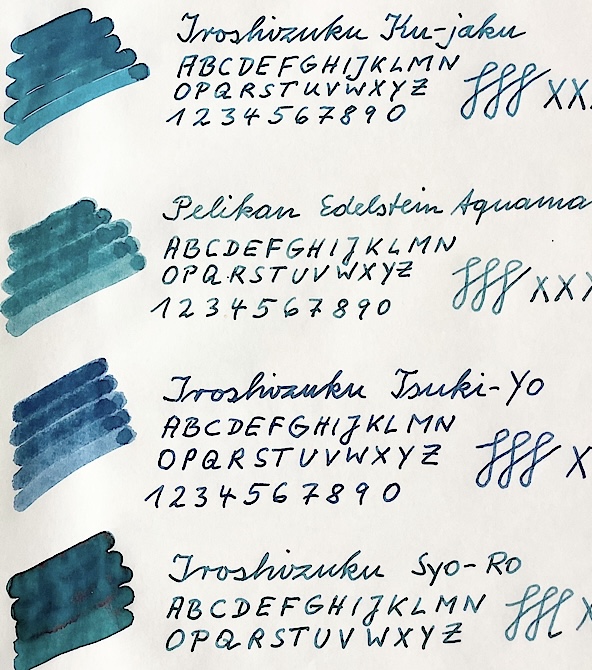 Iroshizuku Ku-jaku
ABCDEFGHIJKLMN
OPQRSTUVWXYZ
fff XXX
1234567890
Pelikan Edelstein Aquama
ABCDEFGHIJKLMN
OPQRSTUVWXYZ
fff XXX
1234567890
Iroshizuku Tsuki-Yo
ABCDEFGHIJKLMN
OPQRSTUVWXYZ
fff X
1234567890
Iroshizuku Syo-Ro
ABCDEFGHIJKLMN
fff X
OPQRSTUVWXYZ